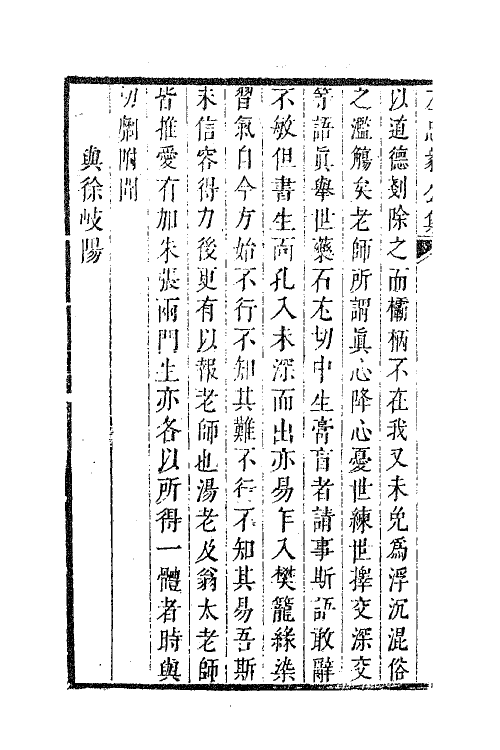 以道德剗除之而欛柄不在我又未免為浮沉混俗
之濫觴矣老師所謂眞心降心憂世練世擇交深交
等語眞舉世藥石尤切中生膏肓者請事斯語敢辭
不敏但書生面孔入未深而出亦易乍入樊籠緣染
習氣自今方始不行不知其難不行不知其易吾斯
未信容得力後更有以報老師也湯老及翁太老師
皆推愛有加朱張兩門生亦各以所得一體者時與
切劘附聞
與徐岐陽